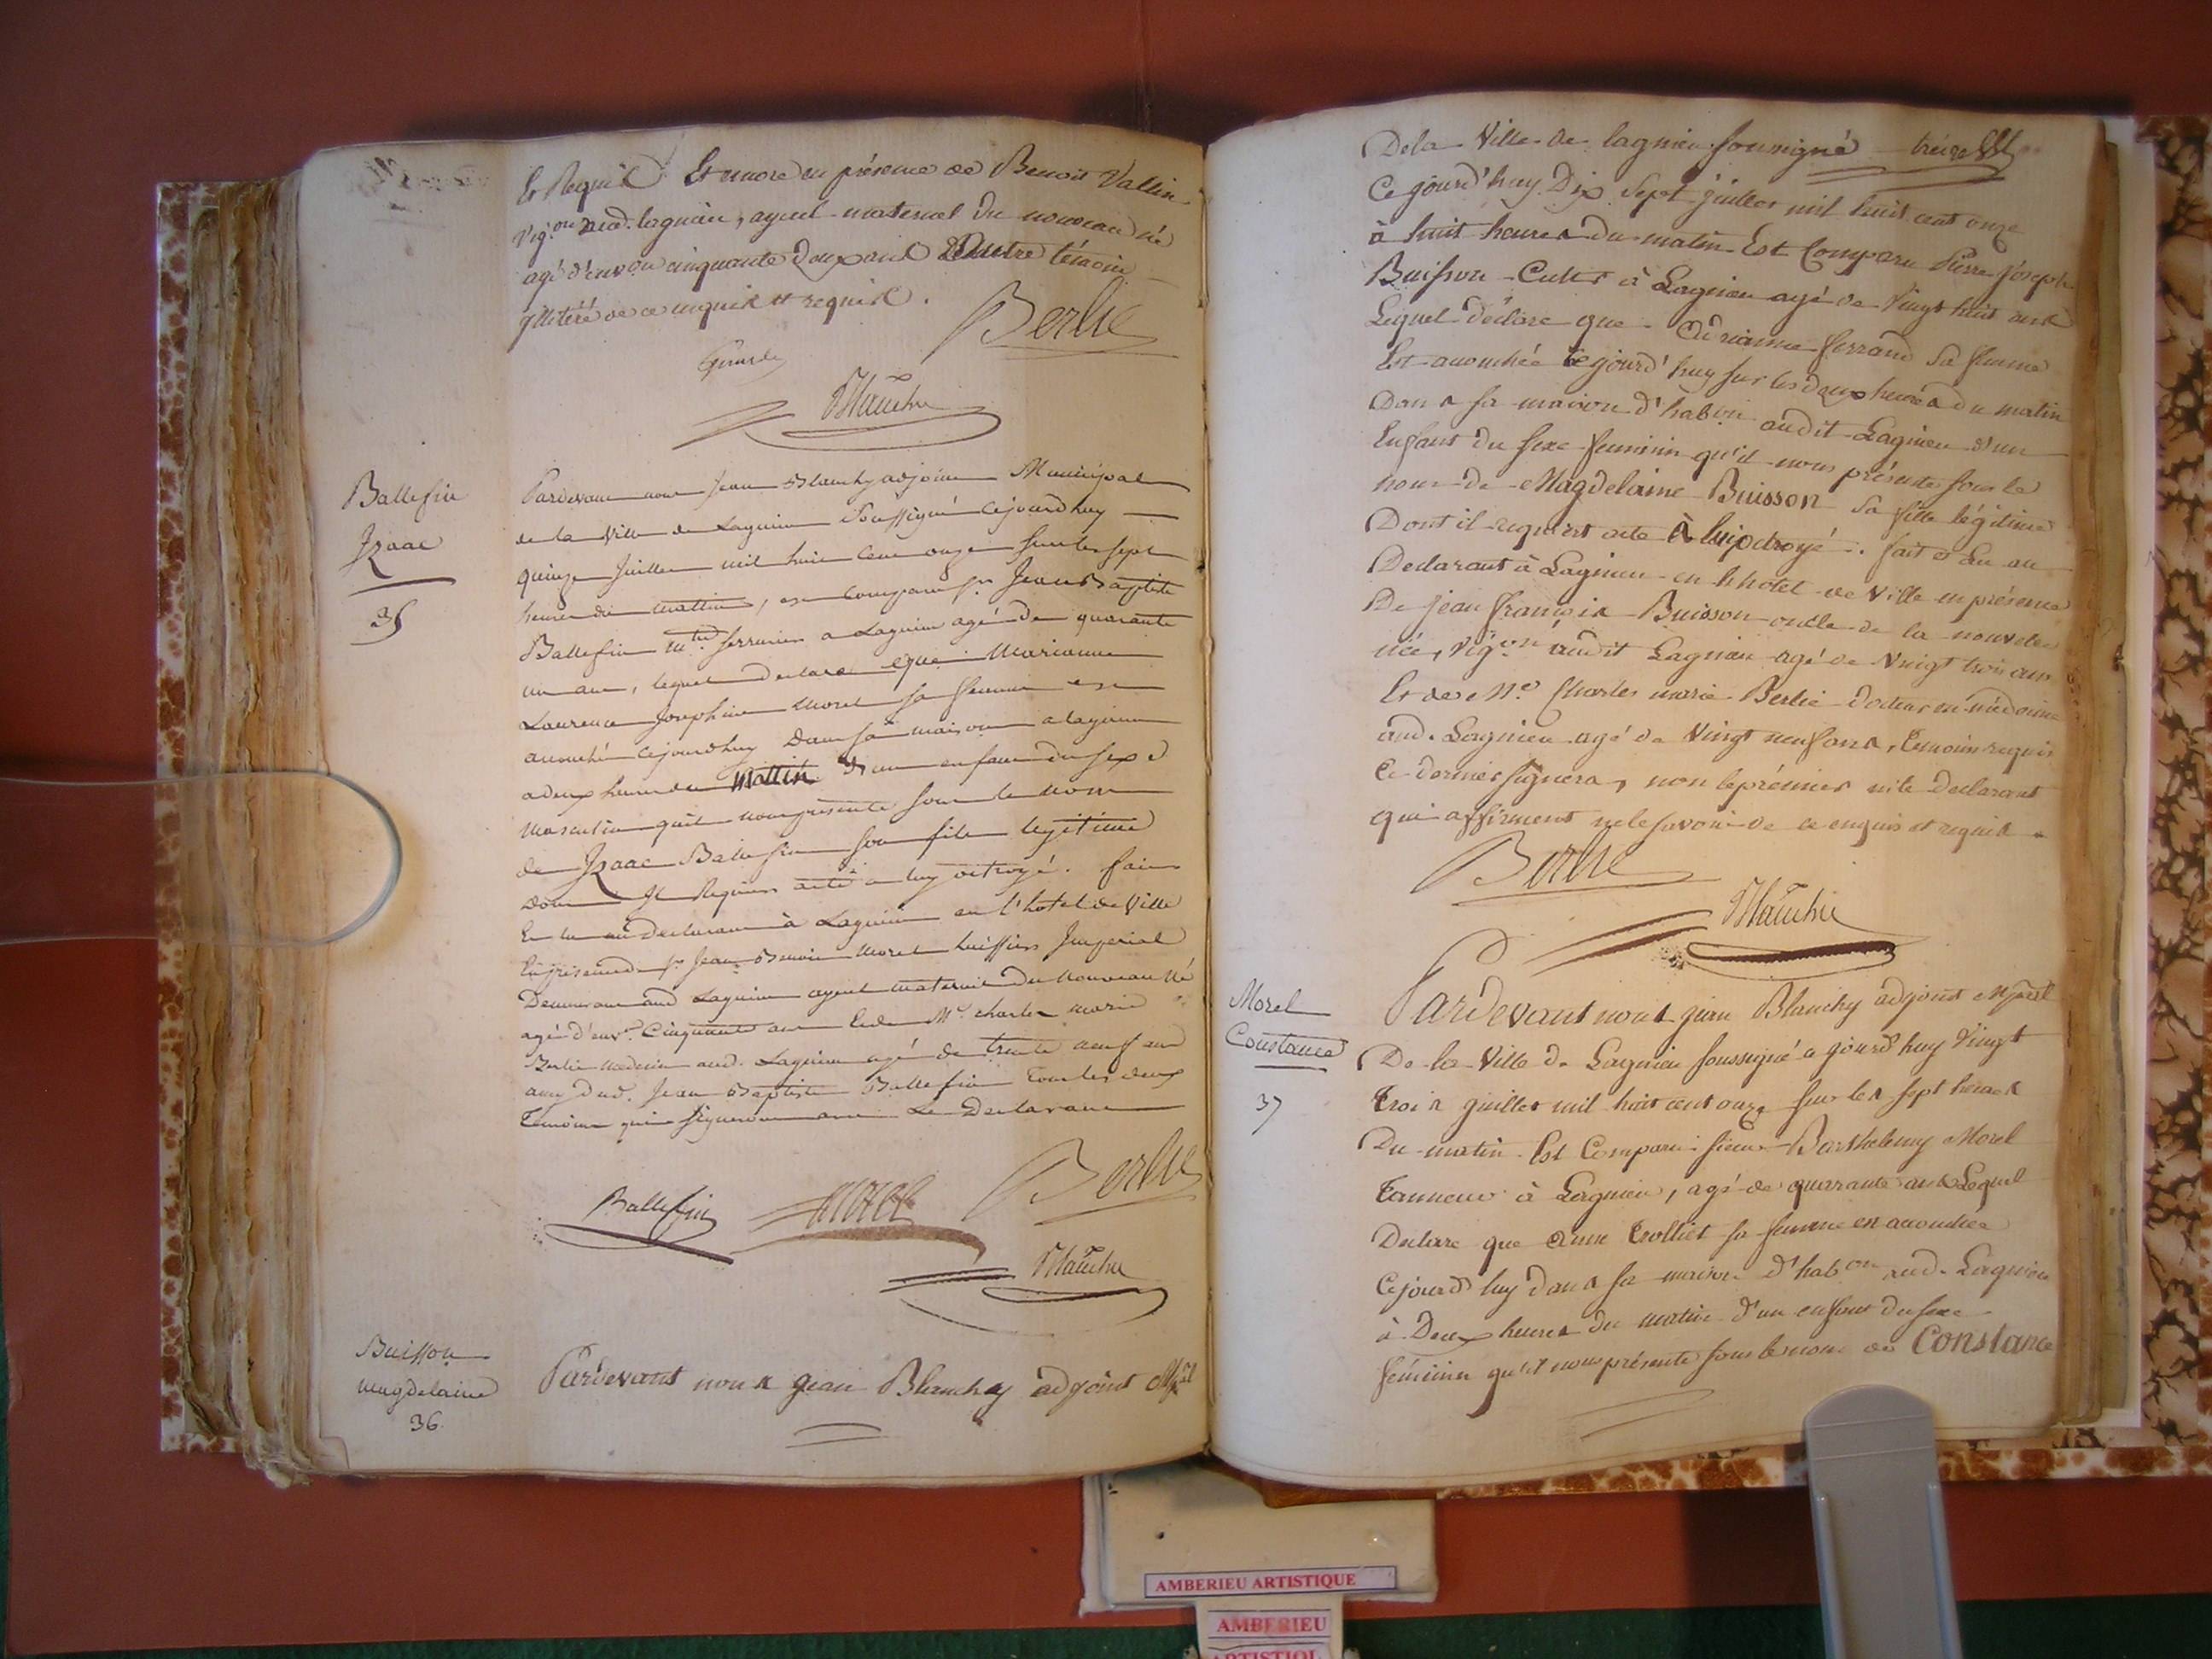 Et Requis Et encore en présence de Benoit Vallin
Vig.on aud. lagnieu, ayeul maternel du nouveau né
agé d'env.on cinquante deux ans autre témoin
illiteré de ce enquis et requis.
Berlié
Blanchy
Ballefin
Izaac
35
Pardevant nous Jean Blanchy adjoint Municipal
de la Ville de Lagnieu Soussigné Cejourdhuy
quinze Juillet mil huit cent onze sur les sept
heures du mattin, est comparu sr. Jean Baptiste
Ballefin mtre serrurier a Lagnieu agé de quarante
un ans, lequel declare que Marianne
Laurence Josephine Morel sa femme est
accouché cejourdhuy dans sa maison a lagnieu
a deux heures du mattin d'un enfant du sexe
masculin quil nous présente sous le nom
de Izaac Ballefin son fils legitime
dont Il Requier acte a luy octroyé. fait
et lu au declarant à Lagnieu en l'hotel de Ville
En présence de sr. Jean Benoit Morel huissier Imperial
Demeurant aud Lagnieu ayeul maternel du nouveau né
agé d'env.n Cinquante ans et de Mr. charles marie
Berlié medecin aud. Lagnieu agé de trente neuf ans
amy dud. Jean Baptiste Ballefin tous les deux
Temoins qui signeront avec Le Declarant
Ballefin Morel Berlié
Blanchy
Buisson
magdelaine
36.
Pardevant nous jean Blanchy adjoint Mpal
De la Ville de lagnieu soussigné
Ce jourd'huy Dix Sept juillet mil huit cent onze
à huit heures du matin Est Comparu Pierre joseph
Buisson Cultr à Lagnieu agé de Vingt huit ans
Lequel déclare que Adrianne ferrand Sa femme
Est accouchée Ce jourd'huy sur les deux heures du matin
Dans sa maison d'hab.on audit Lagnieu d'un
Enfant du sexe feminin qu'il nous présente sous le
nom de Magdelaine Buisson Sa fille légitime
Dont il requiert acte à lui octroyé. fait et Lu au
Declarant à Lagnieu en l'hotel de Ville en présence
De jean françois Buisson oncle de la nouvelle
née, vig.on audit Lagnieu agé de Vingt trois ans
Et de Mr. Charles marie Berlié docteur en médecine
aud. Lagnieu agé de Vingt neuf ans, temoins requis
Ce dernier signera, non le prémier ni le Declarant
qui affirment ne le savoir de ce enquis et requis.
Berlié
Blanchy
Morel
Constance
37
Pardevant nous jean Blanchy adjoint Mpal
De la Ville de Lagnieu soussigné ce jourd'huy Vingt
trois juillet mil huit cent onze sur les sept heures
Du matin Est Comparu sieur Barthelemy Morel
tanneur à Lagnieu, agé de quarante ans Lequel
Declare que anne trolliet sa femme est accouchée
Cejourd'huy dans sa maison d'hab.on aud. Lagnieu
à Deux heures du matin d'un enfant du sexe
féminin qu'il nous présente sous le nom de Constance
AMBERIEU ARTISTIQUE
AMBERIEU